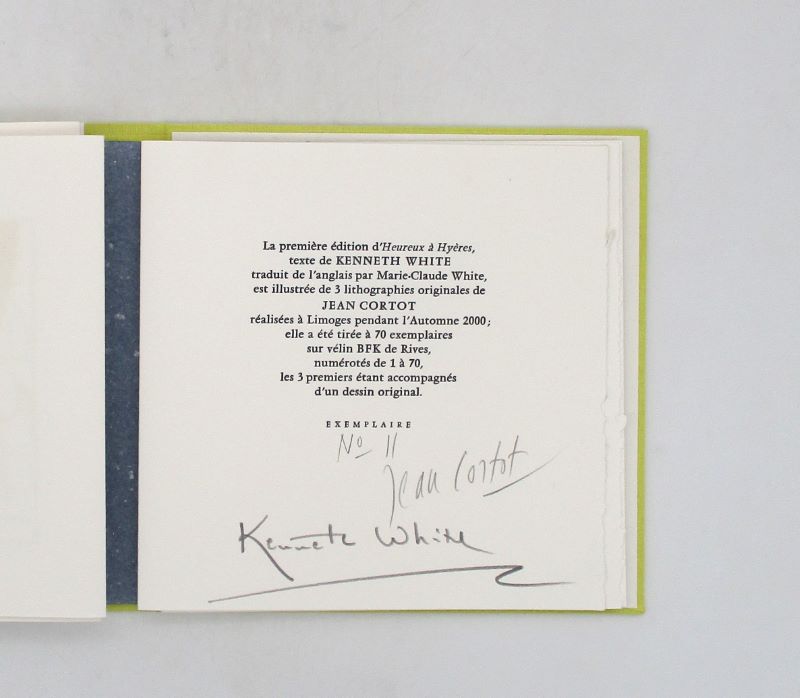 La première édition d'Heureux à Hyères,
texte de KENNETH WHITE
traduit de l'anglais par Marie-Claude White,
est illustrée de 3 lithographies originales de
JEAN CORTOT
réalisées à Limoges pendant l'Automne 2000;
elle a été tirée à 70 exemplaires
sur vélin BFK de Rives,
numérotés de 1 à 70,
les 3 premiers étant accompagnés
d'un dessin original.
EXEMPLAIRE
No 11
Jean Cortot
Kenneth White